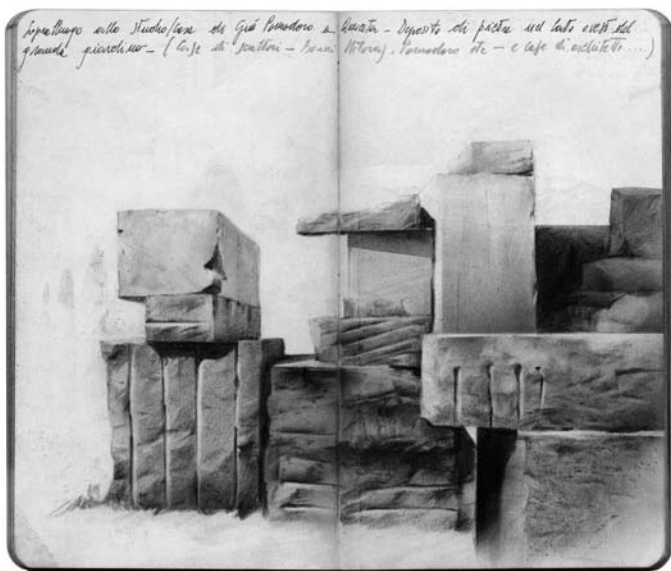 Sopralluogo allo studio/casa di Giò Pomodoro a Querceta - Deposito di pietre nel lato ovest del
grande giardino - (Case di scultori - Henri Pomodoro etc - e case di architetto ....)